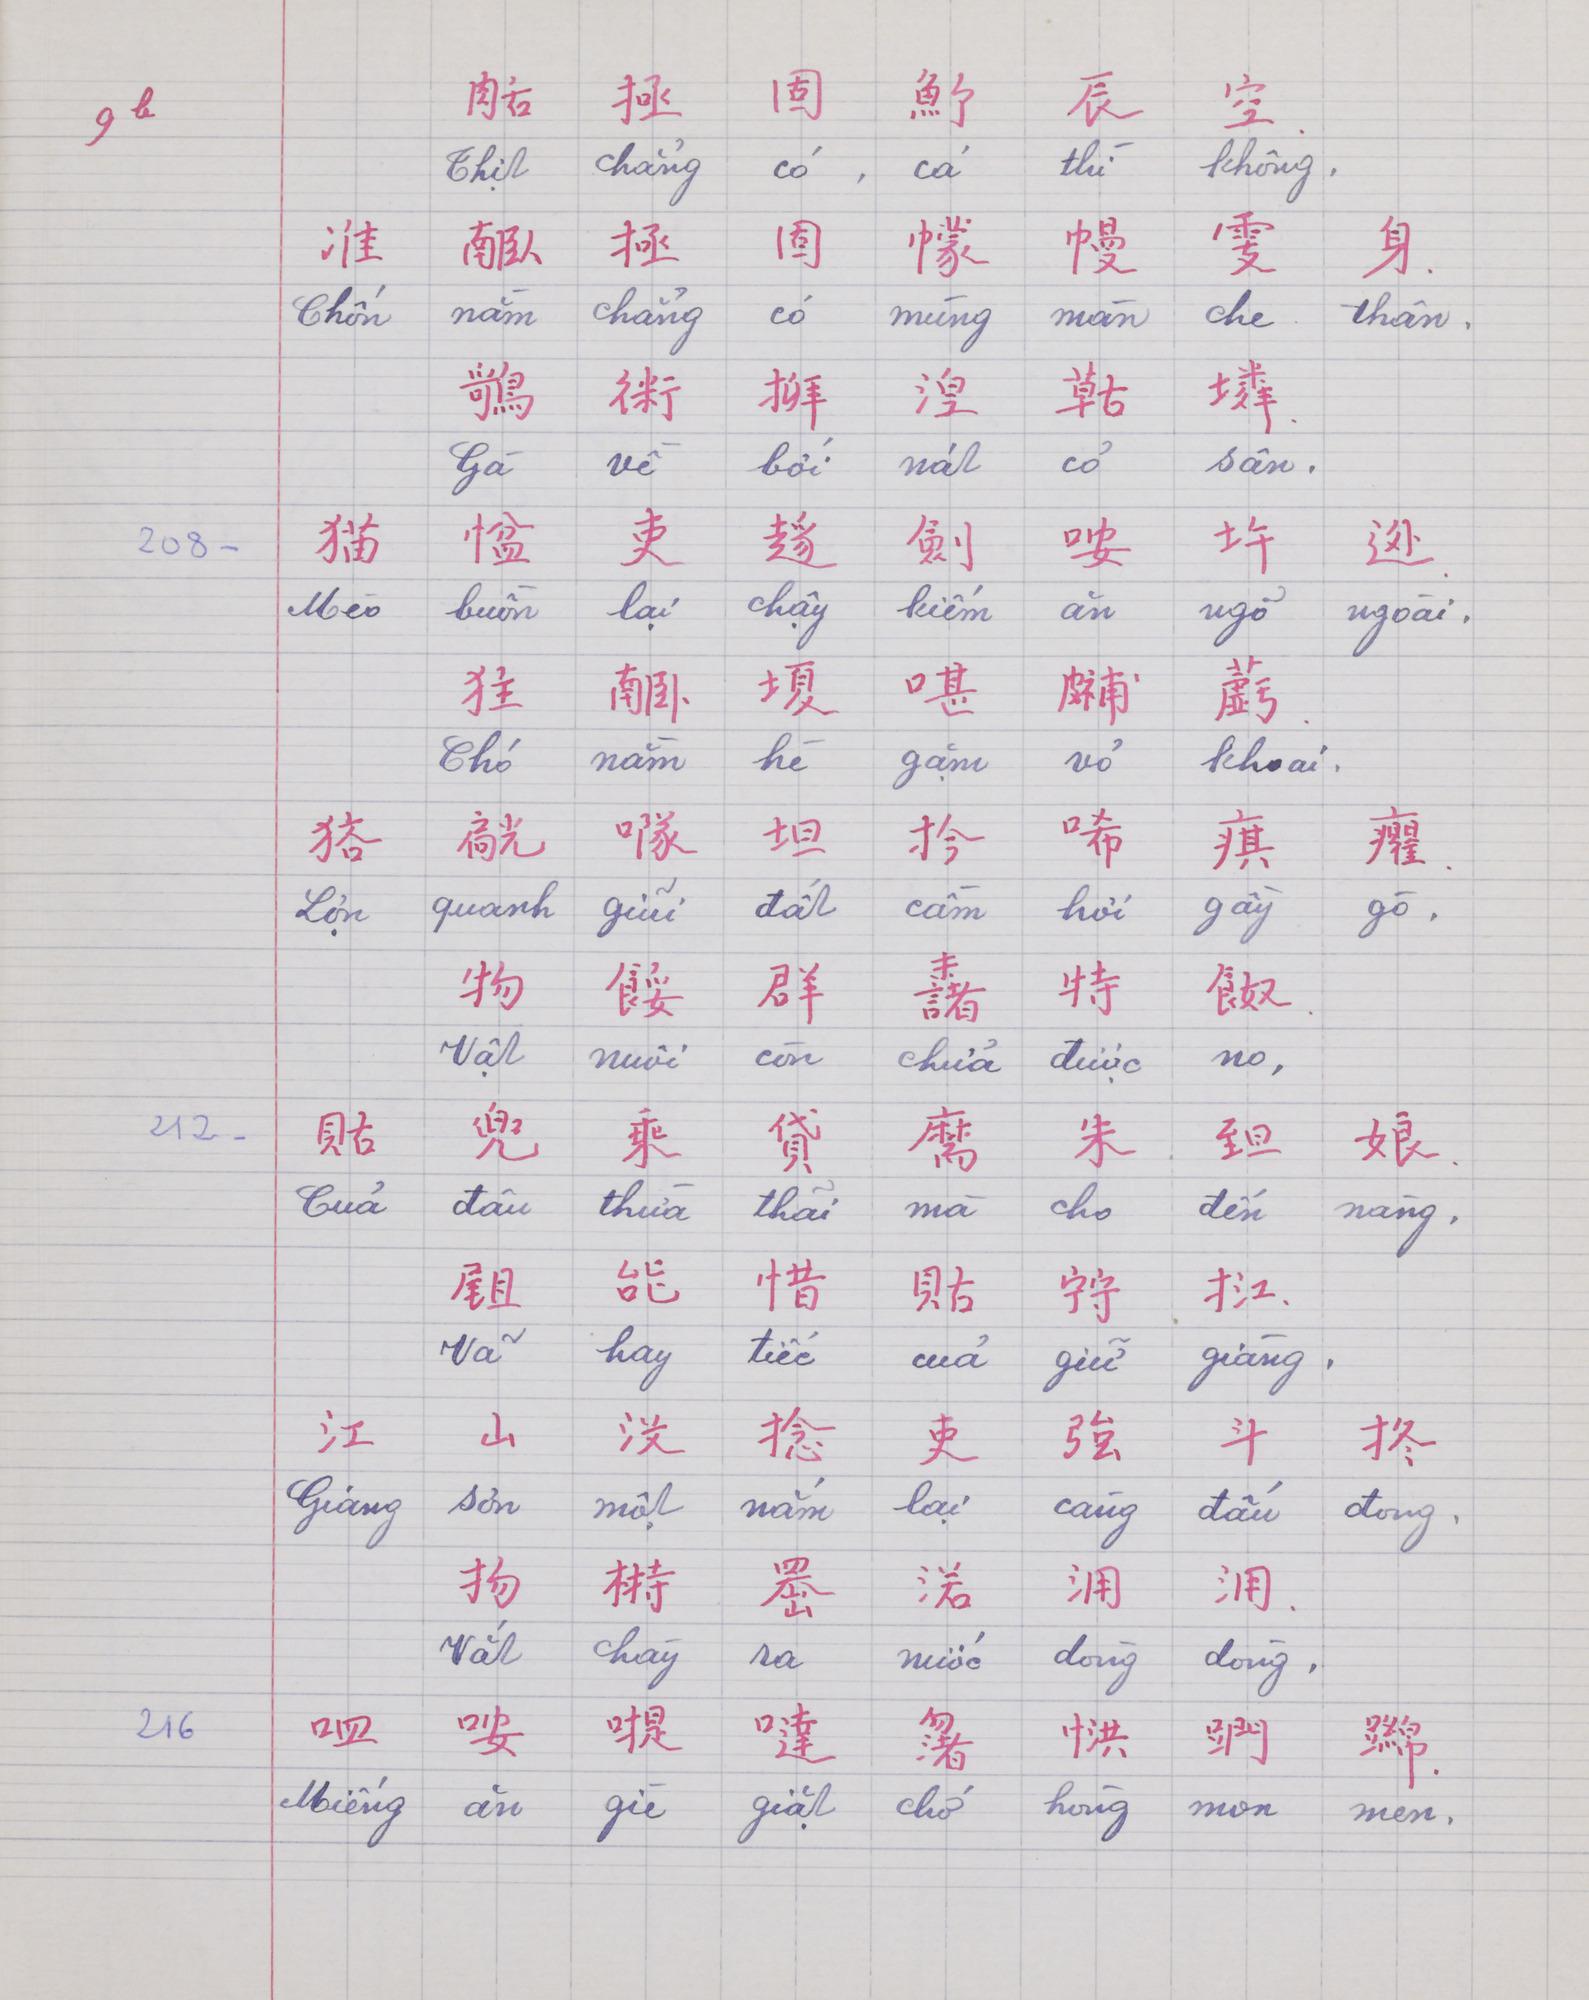 9b
𦧜 極 固 𩵜 辰 空.
Thịt chẳng có, cá thì không.
准 𦣰 極 固 幪 幔 雯 身.
Chốn nằm chẳng có mùng màn che thân.
鵸 術 拼 湟 𦹵 㙙.
Gà về bới nát cỏ sân.
208- 猫 㥳 吏 趍 劍 咹 𡉦 逊.
Mèo buồn lại chạy kiếm ăn ngõ ngoài.
㹥 𦣰 𡏘 啿 䩉 蔰.
Chó nằm hè gặm vỏ khoai.
㺧 觥 㗂 坦 扲 唏 㾛 癯.
Lợn quanh giũi đất cầm hơi gầy gò.
物 餒 群 𣗓 特 𩛂.
Vật nuôi còn chửa được no,
212- 貼 兜 乘 貸 麻 朱 𦤾 娘.
Của đâu thừa thãi mà cho đến nàng.
𡲤 能 惜 貼 𡨹 扛.
Vã hay tiếc của giữ giàng,
江 山 没 捻 吏 強 斗 㧅
Giang sơn một nắm lại càng đấu đong.
扨 榯 𦋦 渃 泂 泂.
Vắt chày ra nước dòng dòng,
216 𠰘 咹 㖷 噠 𤏣 㤨 𨀐 𨅉.
Miếng ăn giè giặt chớ hòng mon men.